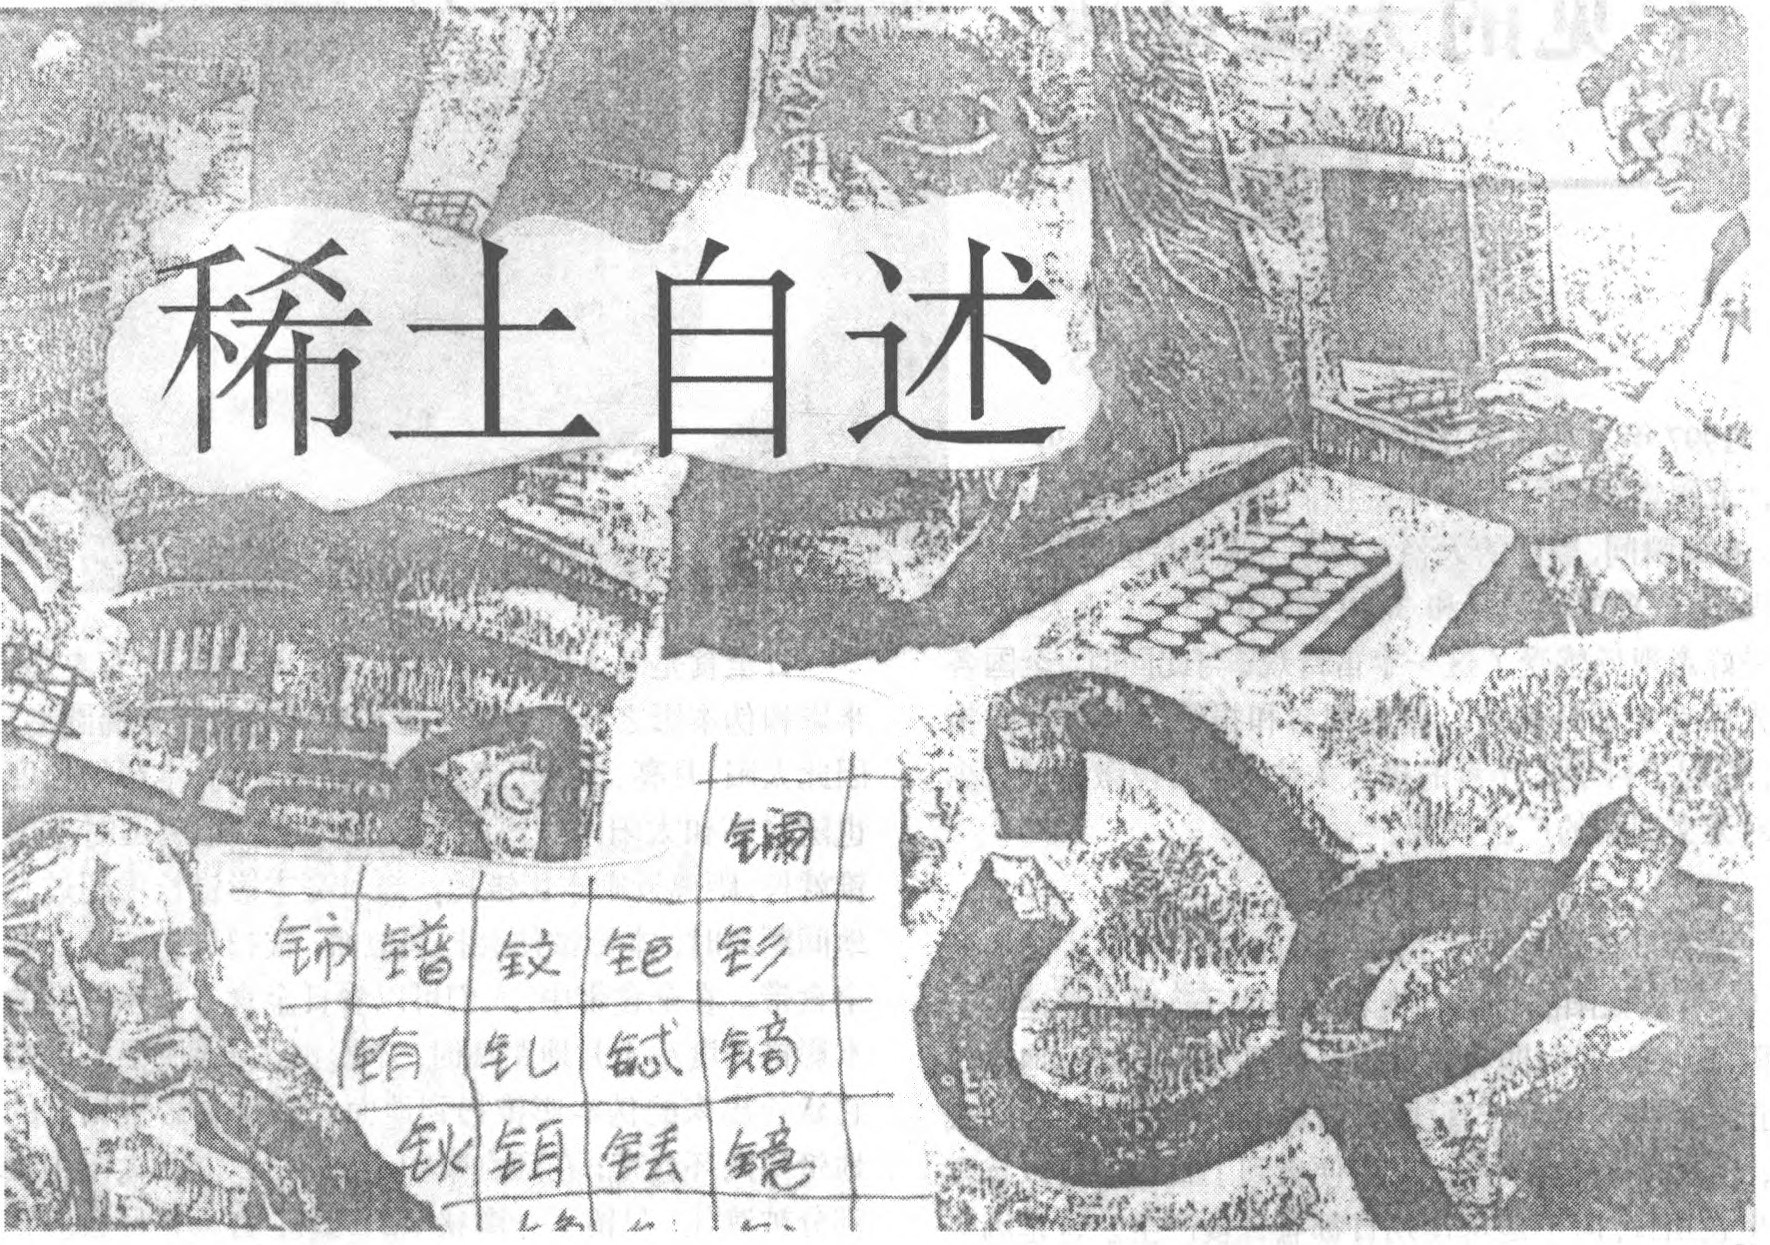 稀土自述
镧
铈 镨 钕 钷 钐
铕 钆 铽 镝
钬 铒 铥 镱